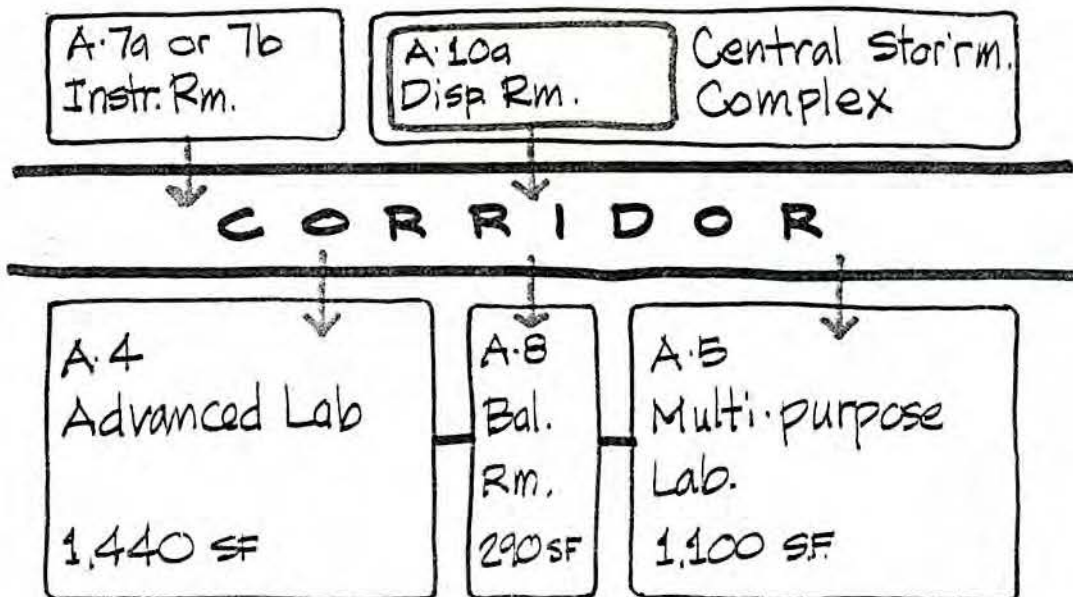 A·7a or 7b
Instr. Rm.
A·10a
Disp. Rm.
Central Stor'rm.
Complex
CORRIDOR
A·4
Advanced Lab
1,440 SF
A·8
Bal.
Rm.
290 SF
A·5
Multi·purpose
Lab.
1,100 SF